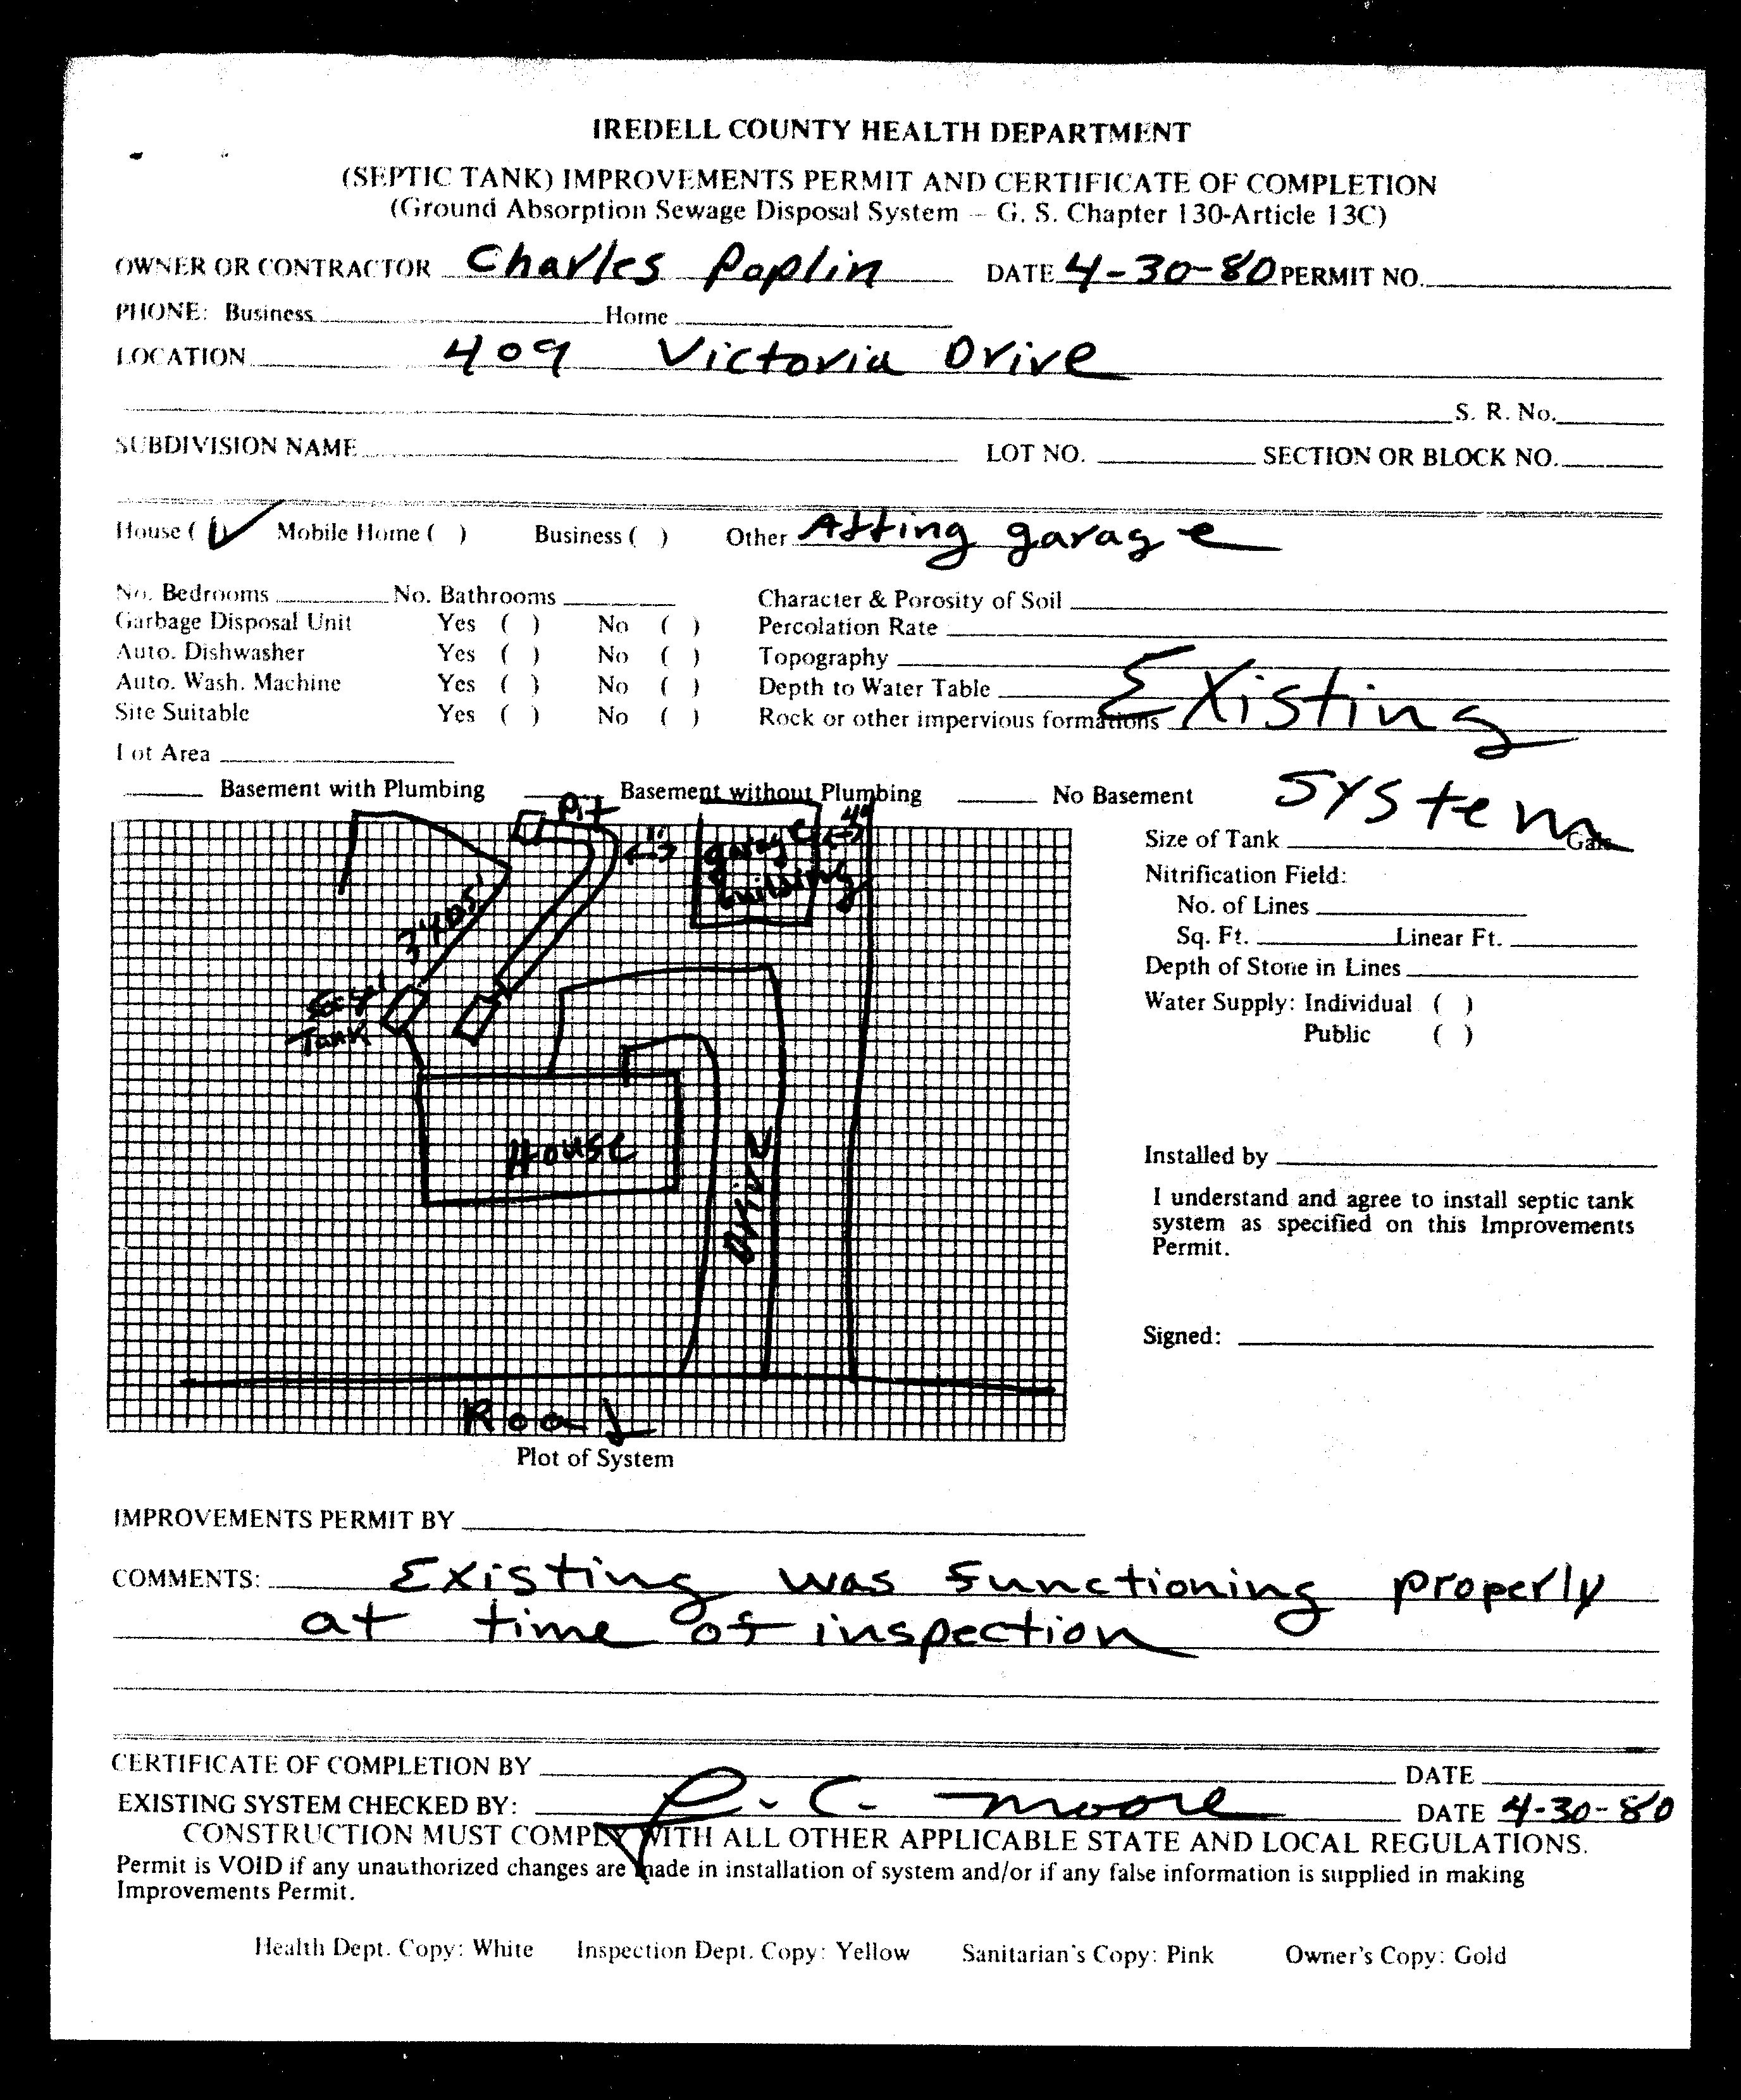 IREDELL COUNTY HEALTH DEPARTMENT
(SEPTIC TANK) IMPROVEMENTS PERMIT AND CERTIFICATE OF COMPLETION
(Ground Absorption Sewage Disposal System – G. S. Chapter 130-Article 13C)
OWNER OR CONTRACTOR Charles Poplin DATE 4-30-80 PERMIT NO.
PHONE: Business Home
LOCATION 409 Victoria Drive
S. R. No.
SUBDIVISION NAME LOT NO. SECTION OR BLOCK NO.
House ( ✓ ) Mobile Home ( ) Business ( ) Other Atting garage
No. Bedrooms No. Bathrooms Character & Porosity of Soil
Garbage Disposal Unit Yes ( ) No ( ) Percolation Rate
Auto. Dishwasher Yes ( ) No ( ) Topography
Auto. Wash. Machine Yes ( ) No ( ) Depth to Water Table
Site Suitable Yes ( ) No ( ) Rock or other impervious formations
Existing
Lot Area
Basement with Plumbing Basement without Plumbing No Basement
System
Pit
garage
building
Tank
House
Drive
Road
Plot of System
Size of Tank Gals.
Nitrification Field:
No. of Lines
Sq. Ft. Linear Ft.
Depth of Stone in Lines
Water Supply: Individual ( )
Public ( )
Installed by
I understand and agree to install septic tank
system as specified on this Improvements
Permit.
Signed:
IMPROVEMENTS PERMIT BY
COMMENTS: Existing was functioning properly
at time of inspection
CERTIFICATE OF COMPLETION BY DATE
EXISTING SYSTEM CHECKED BY: C. Moore DATE 4-30-80
CONSTRUCTION MUST COMPLY WITH ALL OTHER APPLICABLE STATE AND LOCAL REGULATIONS.
Permit is VOID if any unauthorized changes are made in installation of system and/or if any false information is supplied in making
Improvements Permit.
Health Dept. Copy: White Inspection Dept. Copy: Yellow Sanitarian's Copy: Pink Owner's Copy: Gold